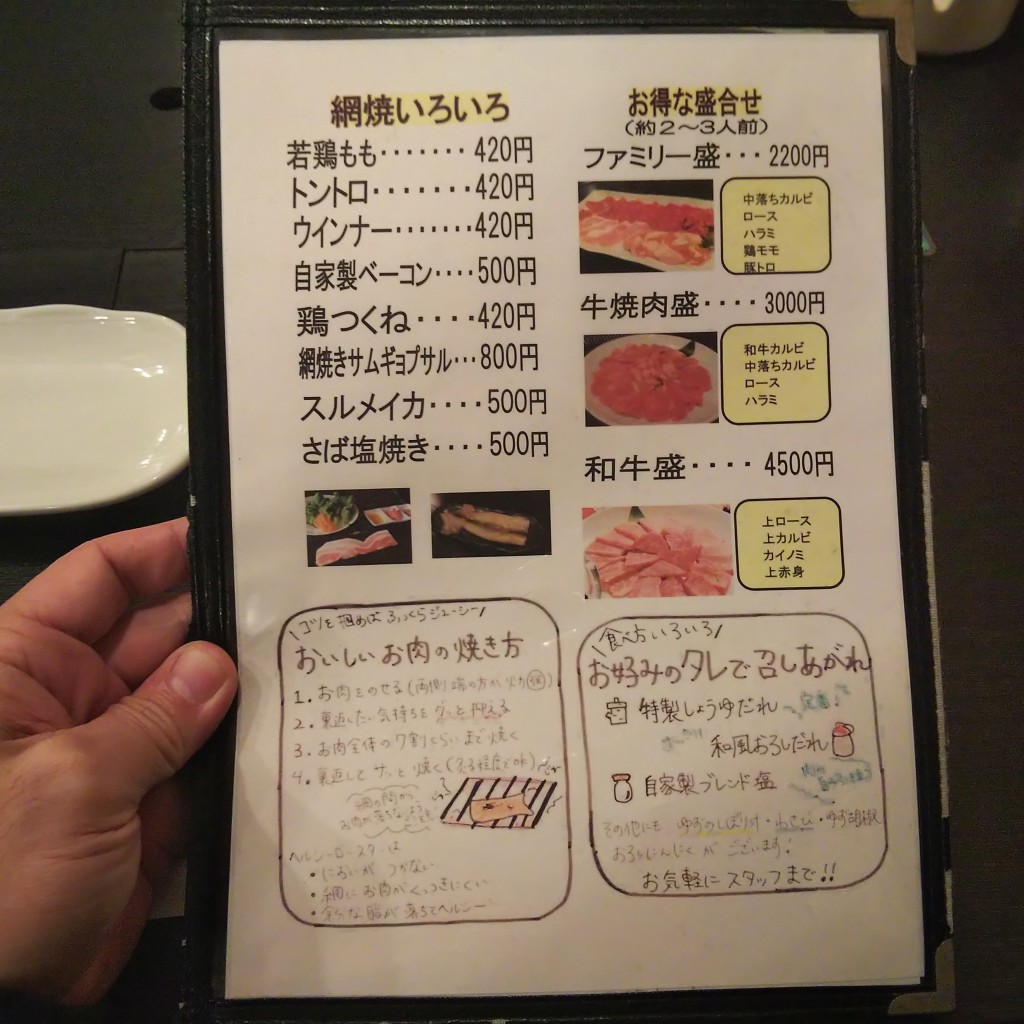 網焼いろいろ
若鶏もも・・・・・・・420円
トントロ・・・・・・・420円
ウインナー・・・・・・・420円
自家製ベーコン・・・・500円
鶏つくね・・・・420円
網焼きサムギョプサル・・・800円
スルメイカ・・・・500円
さば塩焼き・・・・500円
お得な盛合せ
（約2～3人前）
ファミリー盛・・・2200円
中落ちカルビ
ロース
ハラミ
鶏モモ
豚トロ
牛焼肉盛・・・・3000円
和牛カルビ
中落ちカルビ
ロース
ハラミ
和牛盛・・・・4500円
上ロース
上カルビ
カイノミ
上赤身
\コツを掴めばふっくらジューシー/
おいしいお肉の焼き方
1. お肉をのせる(両側 端の方が火力強)
2. 裏返したい気持ちをグッと抑える
3. お肉全体の7割くらいまで焼く
4. 裏返してサッと焼く(炙る程度でOK)
網の間から
ヘルシーロースターは
・においがつかない
・網にお肉がくっつきにくい
・余分な脂が落ちてヘルシー
\食べ方いろいろ/
お好みのタレで召しあがれ
特製しょうゆだれ 定番♪
和風おろしだれ
自家製ブレンド塩
その他にも ゆずのしぼり汁・わさび・ゆず胡椒
おろしにんにくがございます!
お気軽にスタッフまで!!